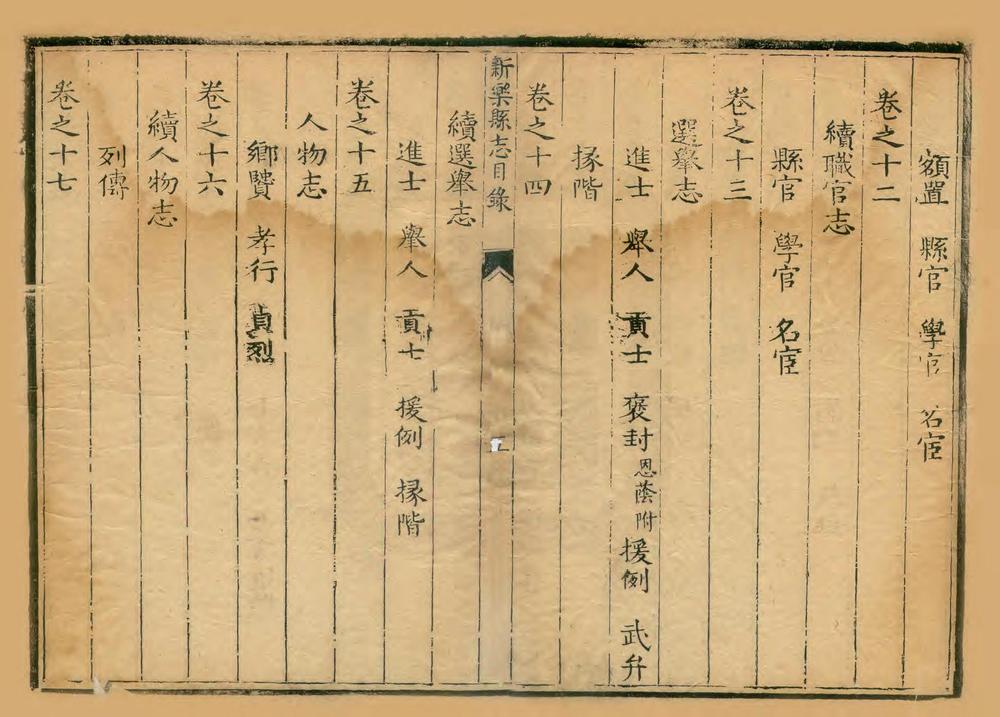 額置 縣官 學官 名宦
卷之十二
續職官志
縣官 學官 名宦
卷之十三
選舉志
進士 舉人 貢士 褒封恩蔭附 援例 武弁
掾階
卷之十四
新樂縣志目錄 五
續選舉志
進士 舉人 貢士 援例 掾階
卷之十五
人物志
鄉賢 孝行 貞烈
卷之十六
續人物志
列傳
卷之十七